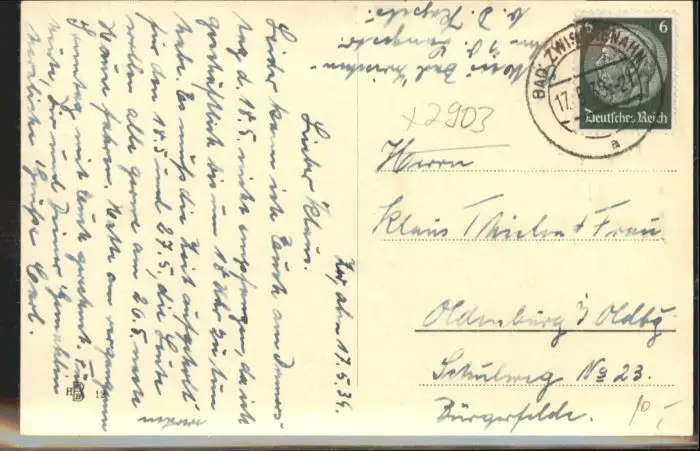 Zw'ahn 17.5.34.
Lieber Klaus.
Leider kann ich Euch am Donners-
tag d. 18.5. nicht empfangen, da ich
geschäftlich bis um 18 Uhr zu tun
habe. Es muß die Zeit aufgeholt
für den 18.5 und 27.5, die Leute
wollen alle gerne am 26.5 nach
Hause fahren. Hatte am vergangenen
Sonntag mit Euch gerechnet. Für
heute Dir und Deiner Gemahlin
herzliche Grüße Carl.
werden
Bad Zwischen-
b. D.
BAD ZWISCHENAHN
17.5.34
a
6
6
Deutsches Reich
x2903
Herrn
Klaus Thielen + Frau
Oldenburg i/Oldbg.
Schulweg No 23.
Bürgerfelde.
10,-
H 12